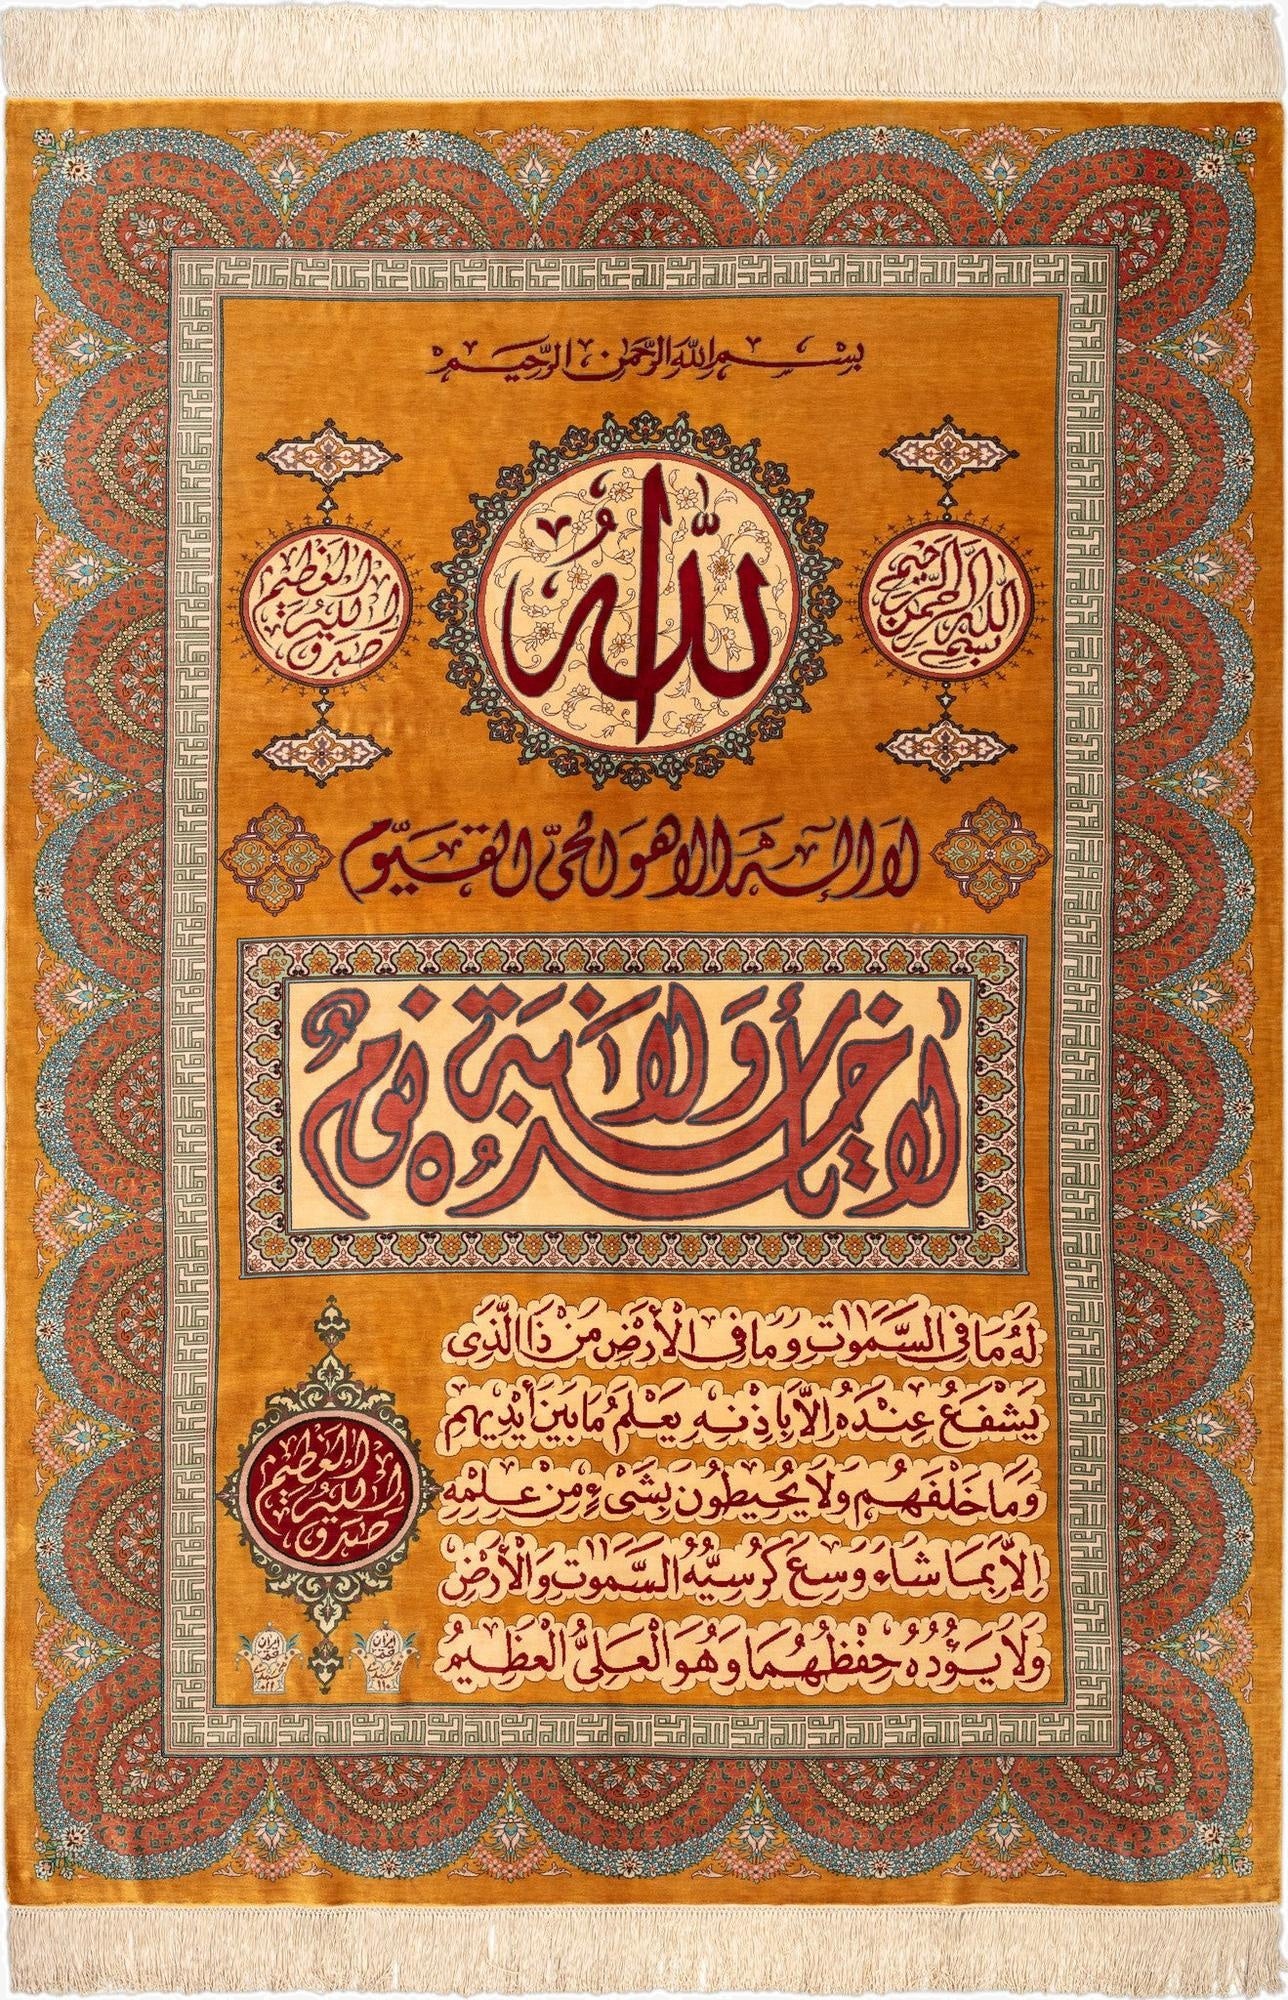 بسم الله الرحمن الرحيم
بسم الله الرحمن الرحيم
الله
صدق الله العلي العظيم
لا اله الا هو الحي القيوم
لا تأخذه سنة ولا نوم
لَهُ مَا فِي السَّمٰوٰتِ وَمَا فِي الْأَرْضِ مَنْ ذَا الَّذِي
يَشْفَعُ عِنْدَهُ إِلَّا بِإِذْنِهِ يَعْلَمُ مَا بَيْنَ أَيْدِيهِمْ
وَمَا خَلْفَهُمْ وَلَا يُحِيطُونَ بِشَيْءٍ مِنْ عِلْمِهِ
إِلَّا بِمَا شَاءَ وَسِعَ كُرْسِيُّهُ السَّمٰوٰتِ وَالْأَرْضَ
وَلَا يَؤُدُهُ حِفْظُهُمَا وَهُوَ الْعَلِيُّ الْعَظِيمُ
صدق الله العلي العظيم
ایران
قم
ایران
قم